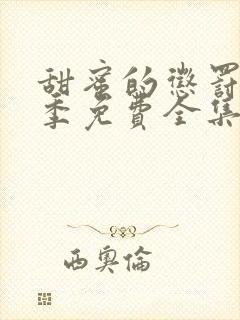 甜蜜的懲罰
季免費全集
西奧倫